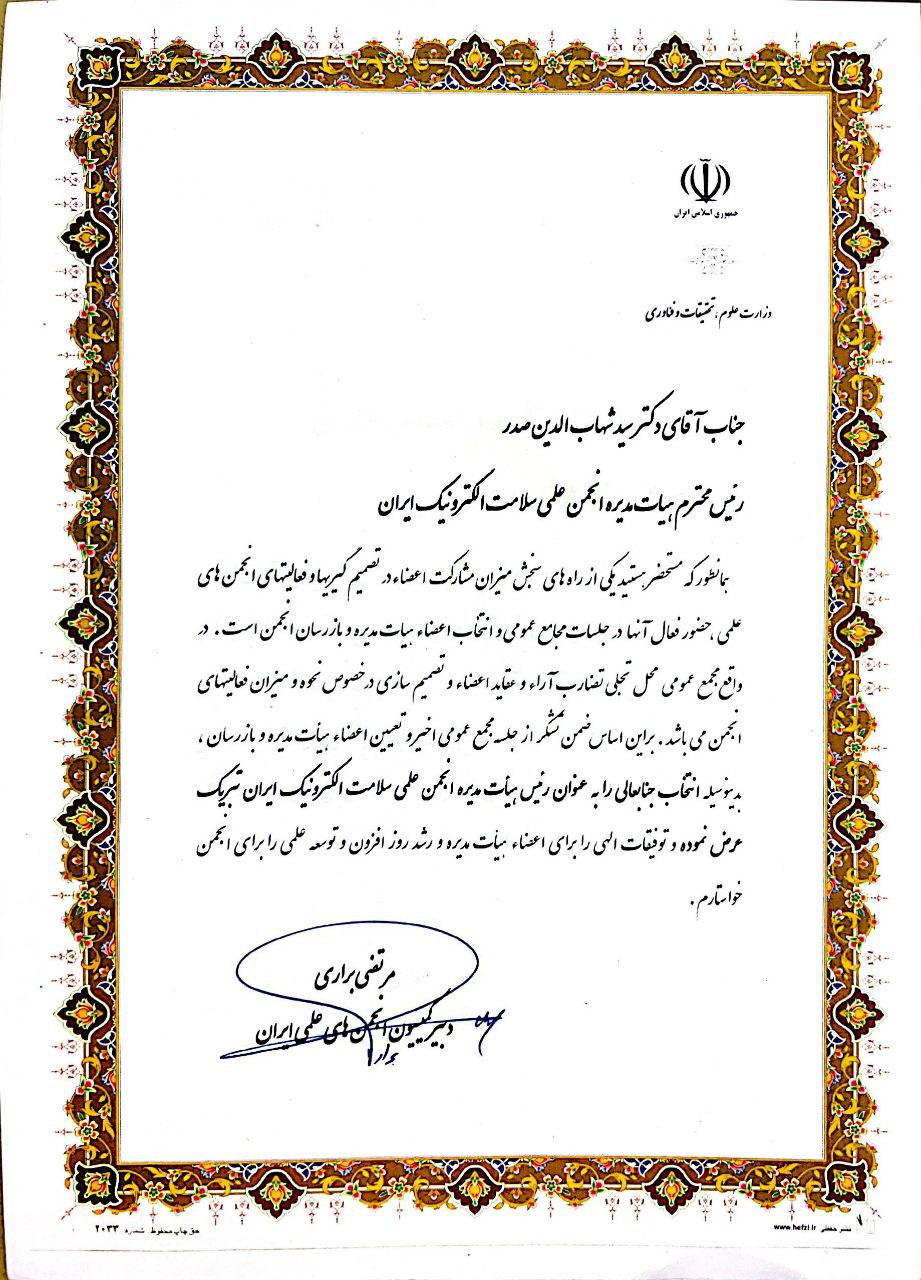 جمهوری اسلامی ایران
وزارت علوم، تحقیقات و فناوری
جناب آقای دکتر سید شهاب الدین صدر
رئیس محترم هیات مدیره انجمن علمی سلامت الکترونیک ایران
همانطور که مستحضر هستید یکی از راه های سنجش میزان مشارکت اعضاء در تصمیم گیریها و فعالیتهای انجمن های
علمی، حضور فعال آنها در جلسات مجامع عمومی و انتخاب اعضاء هیات مدیره و بازرسان انجمن است. در
واقع مجمع عمومی محل تجلی تضارب آراء و عقاید اعضاء و تصمیم سازی در خصوص نحوه و میزان فعالیتهای
انجمن می باشد. براین اساس ضمن تشکر از جلسه مجمع عمومی اخیر و تعیین اعضاء هیأت مدیره و بازرسان،
بدینوسیله انتخاب جنابعالی را به عنوان رئیس هیأت مدیره انجمن علمی سلامت الکترونیک ایران تبریک
عرض نموده و توفیقات الهی را برای اعضاء هیأت مدیره و رشد روز افزون و توسعه علمی را برای انجمن
خواستارم.
مرتضی براری
دبیر کمیسیون انجمن های علمی ایران
نشر حفظی www.hefzi.ir
حق چاپ محفوظ شماره ۲۰۳۳